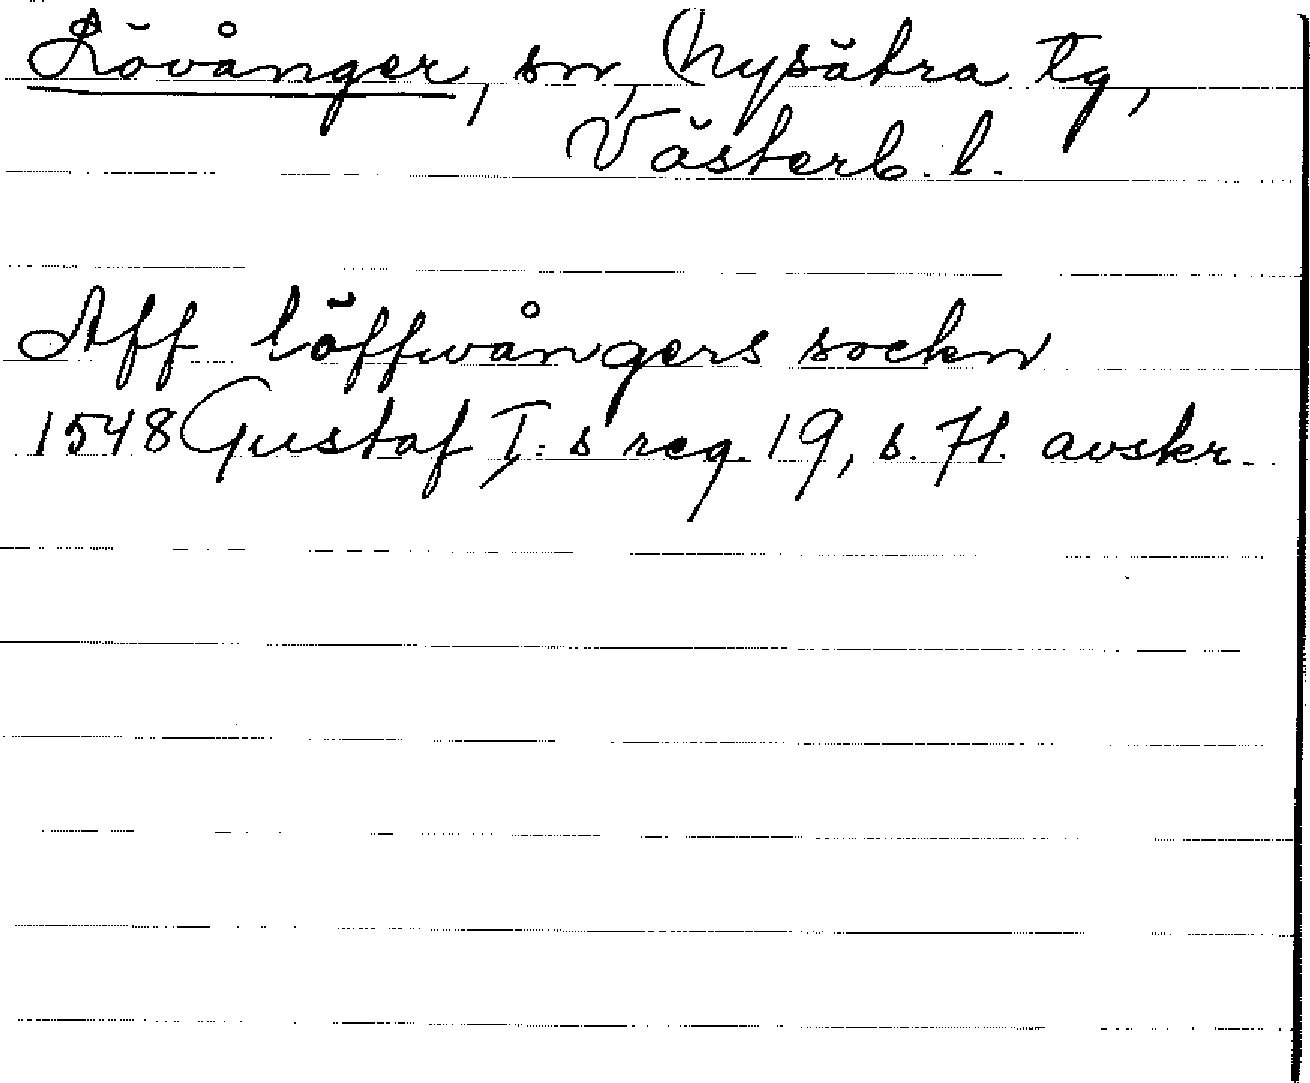 Lövånger, sn, Nysätra tg,
Västerb. l.
Aff löffwångers sockn
1548 Gustaf I:s reg. 19, s. 71. avskr.